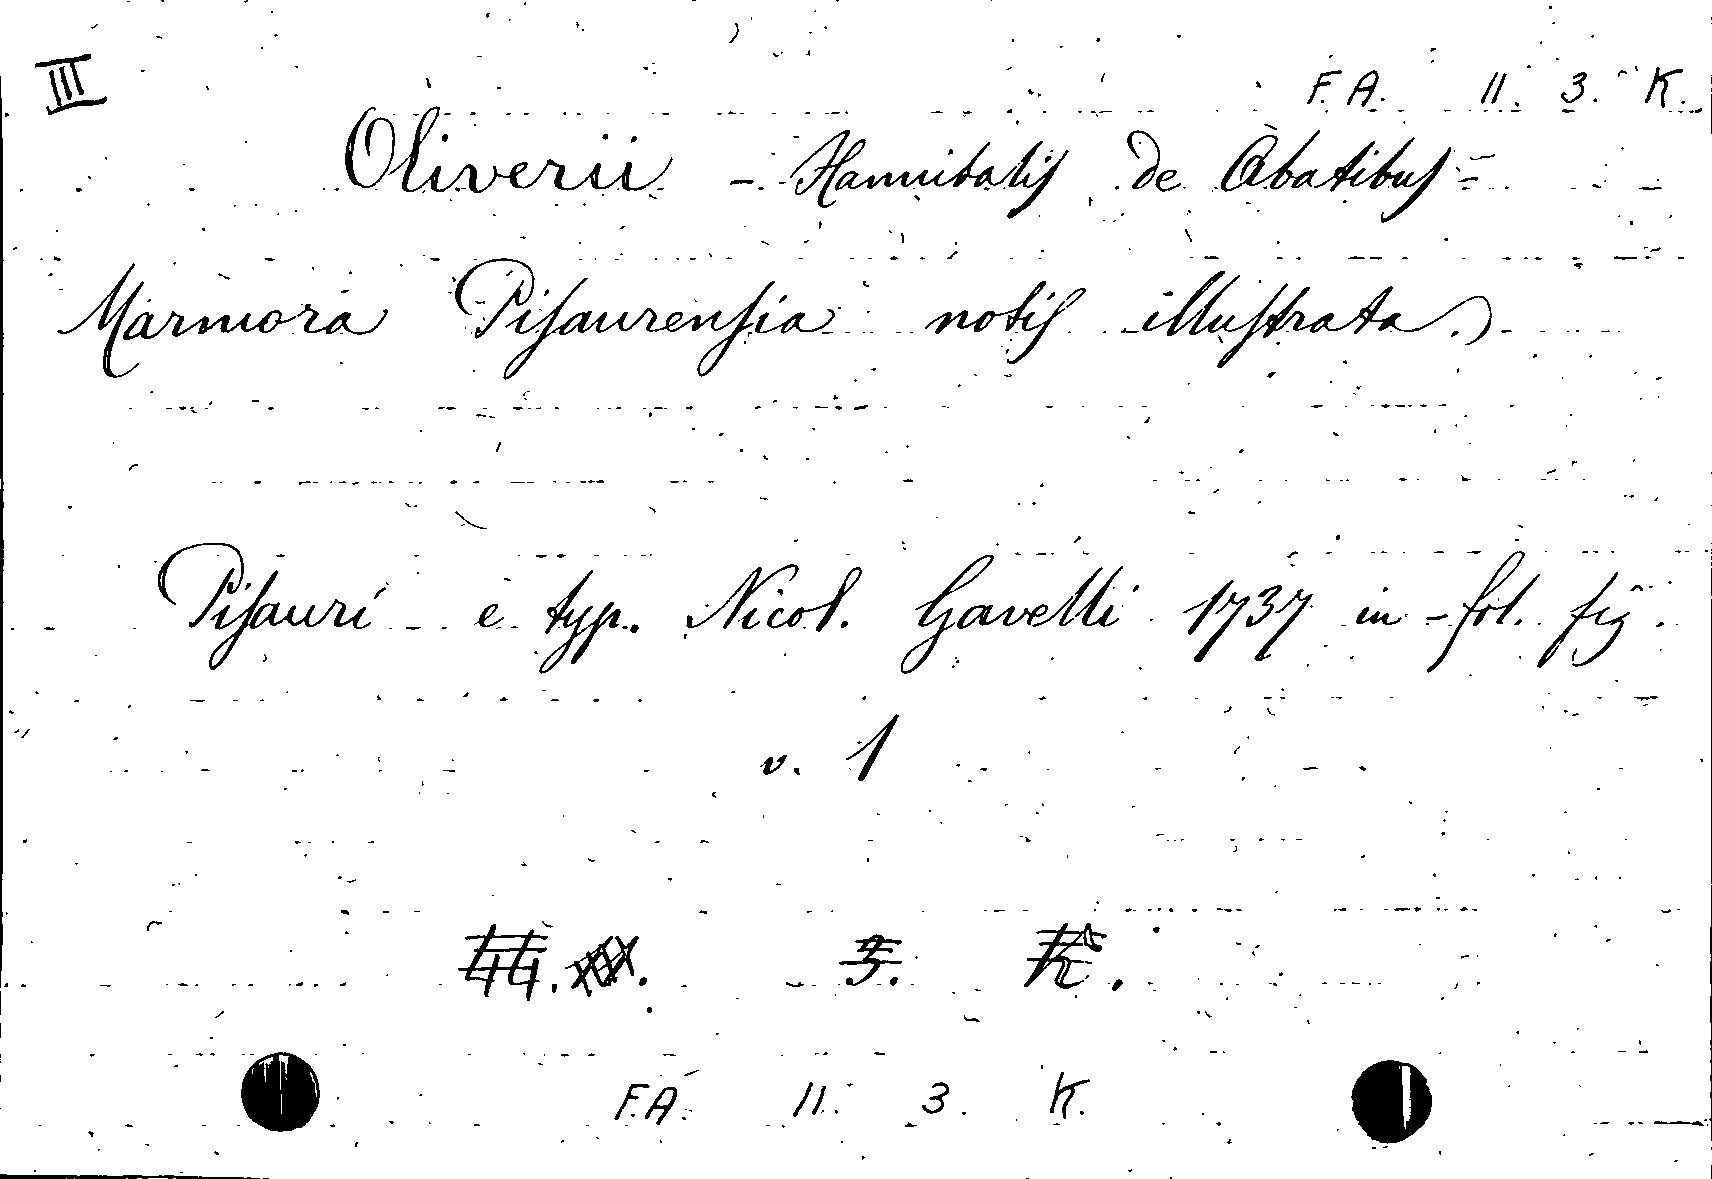 III
F. A. 11. 3. K.
Oliverii - Hannibalis de Abatibus =
Marmora Pisaurensia notis illustrata.
Pisauri e typ. Nicol. Gavelli 1737 in-fol. fig.
v. 1
3. K.
F. A. 11. 3. K.